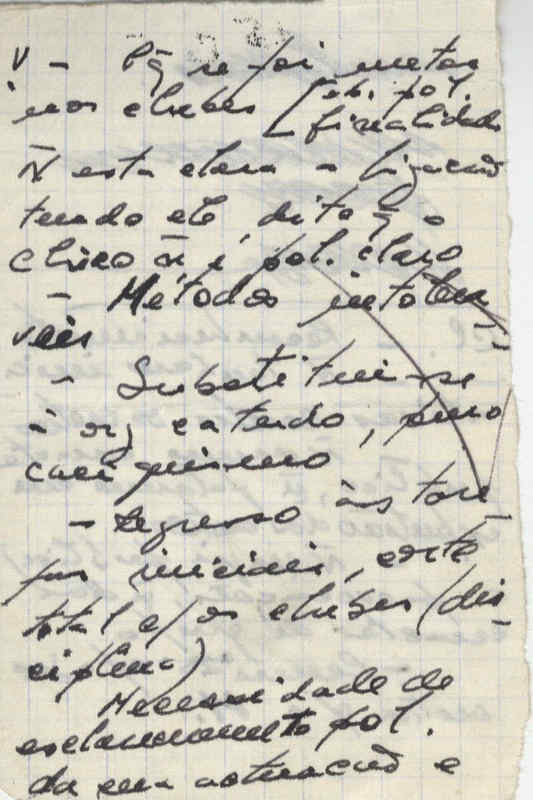 V - Pq se foi meter
nos clubes [ pol.
finalidades
Ñ está clara a ligação
tendo ele dito q o
Chico ñ é pol. claro
- Métodos intolerá
veis
- Substitui-se
à org e a tudo, puro
caciquismo
- Regresso às tare
fas iniciais, corte
total c/ os clubes (dis
ciplina)
Necessidade de
esclarecimento pol.
da sua actuação e